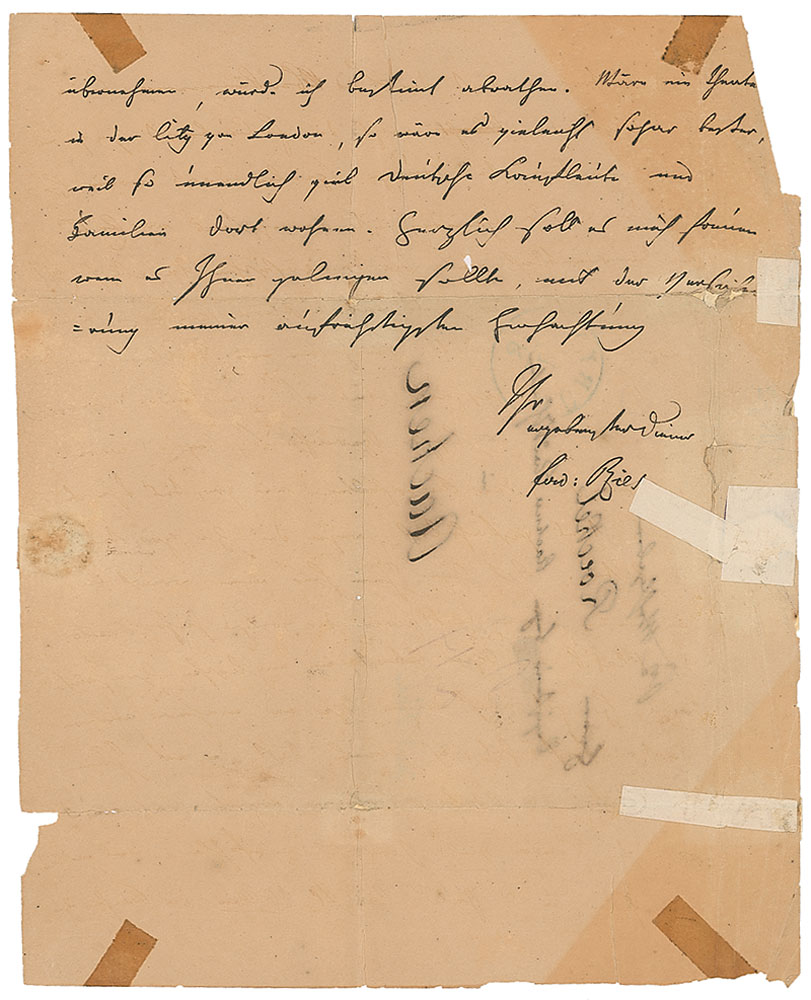 übernehmen, würde ich bestimt abrathen. Wäre ein Theater
in der City von London, so wäre es vieleicht sogar besser,
weil so unendlich viel Deutsche Kaufleute und
Familien dort wohnen. Herzlich soll es mich freuen
wenn es Ihnen gelingen sollte, mit der Versiche
=rung meiner aufrichtigsten Hochachtung
Ihr
ergebenster Diener
ferd: Ries
Aachen